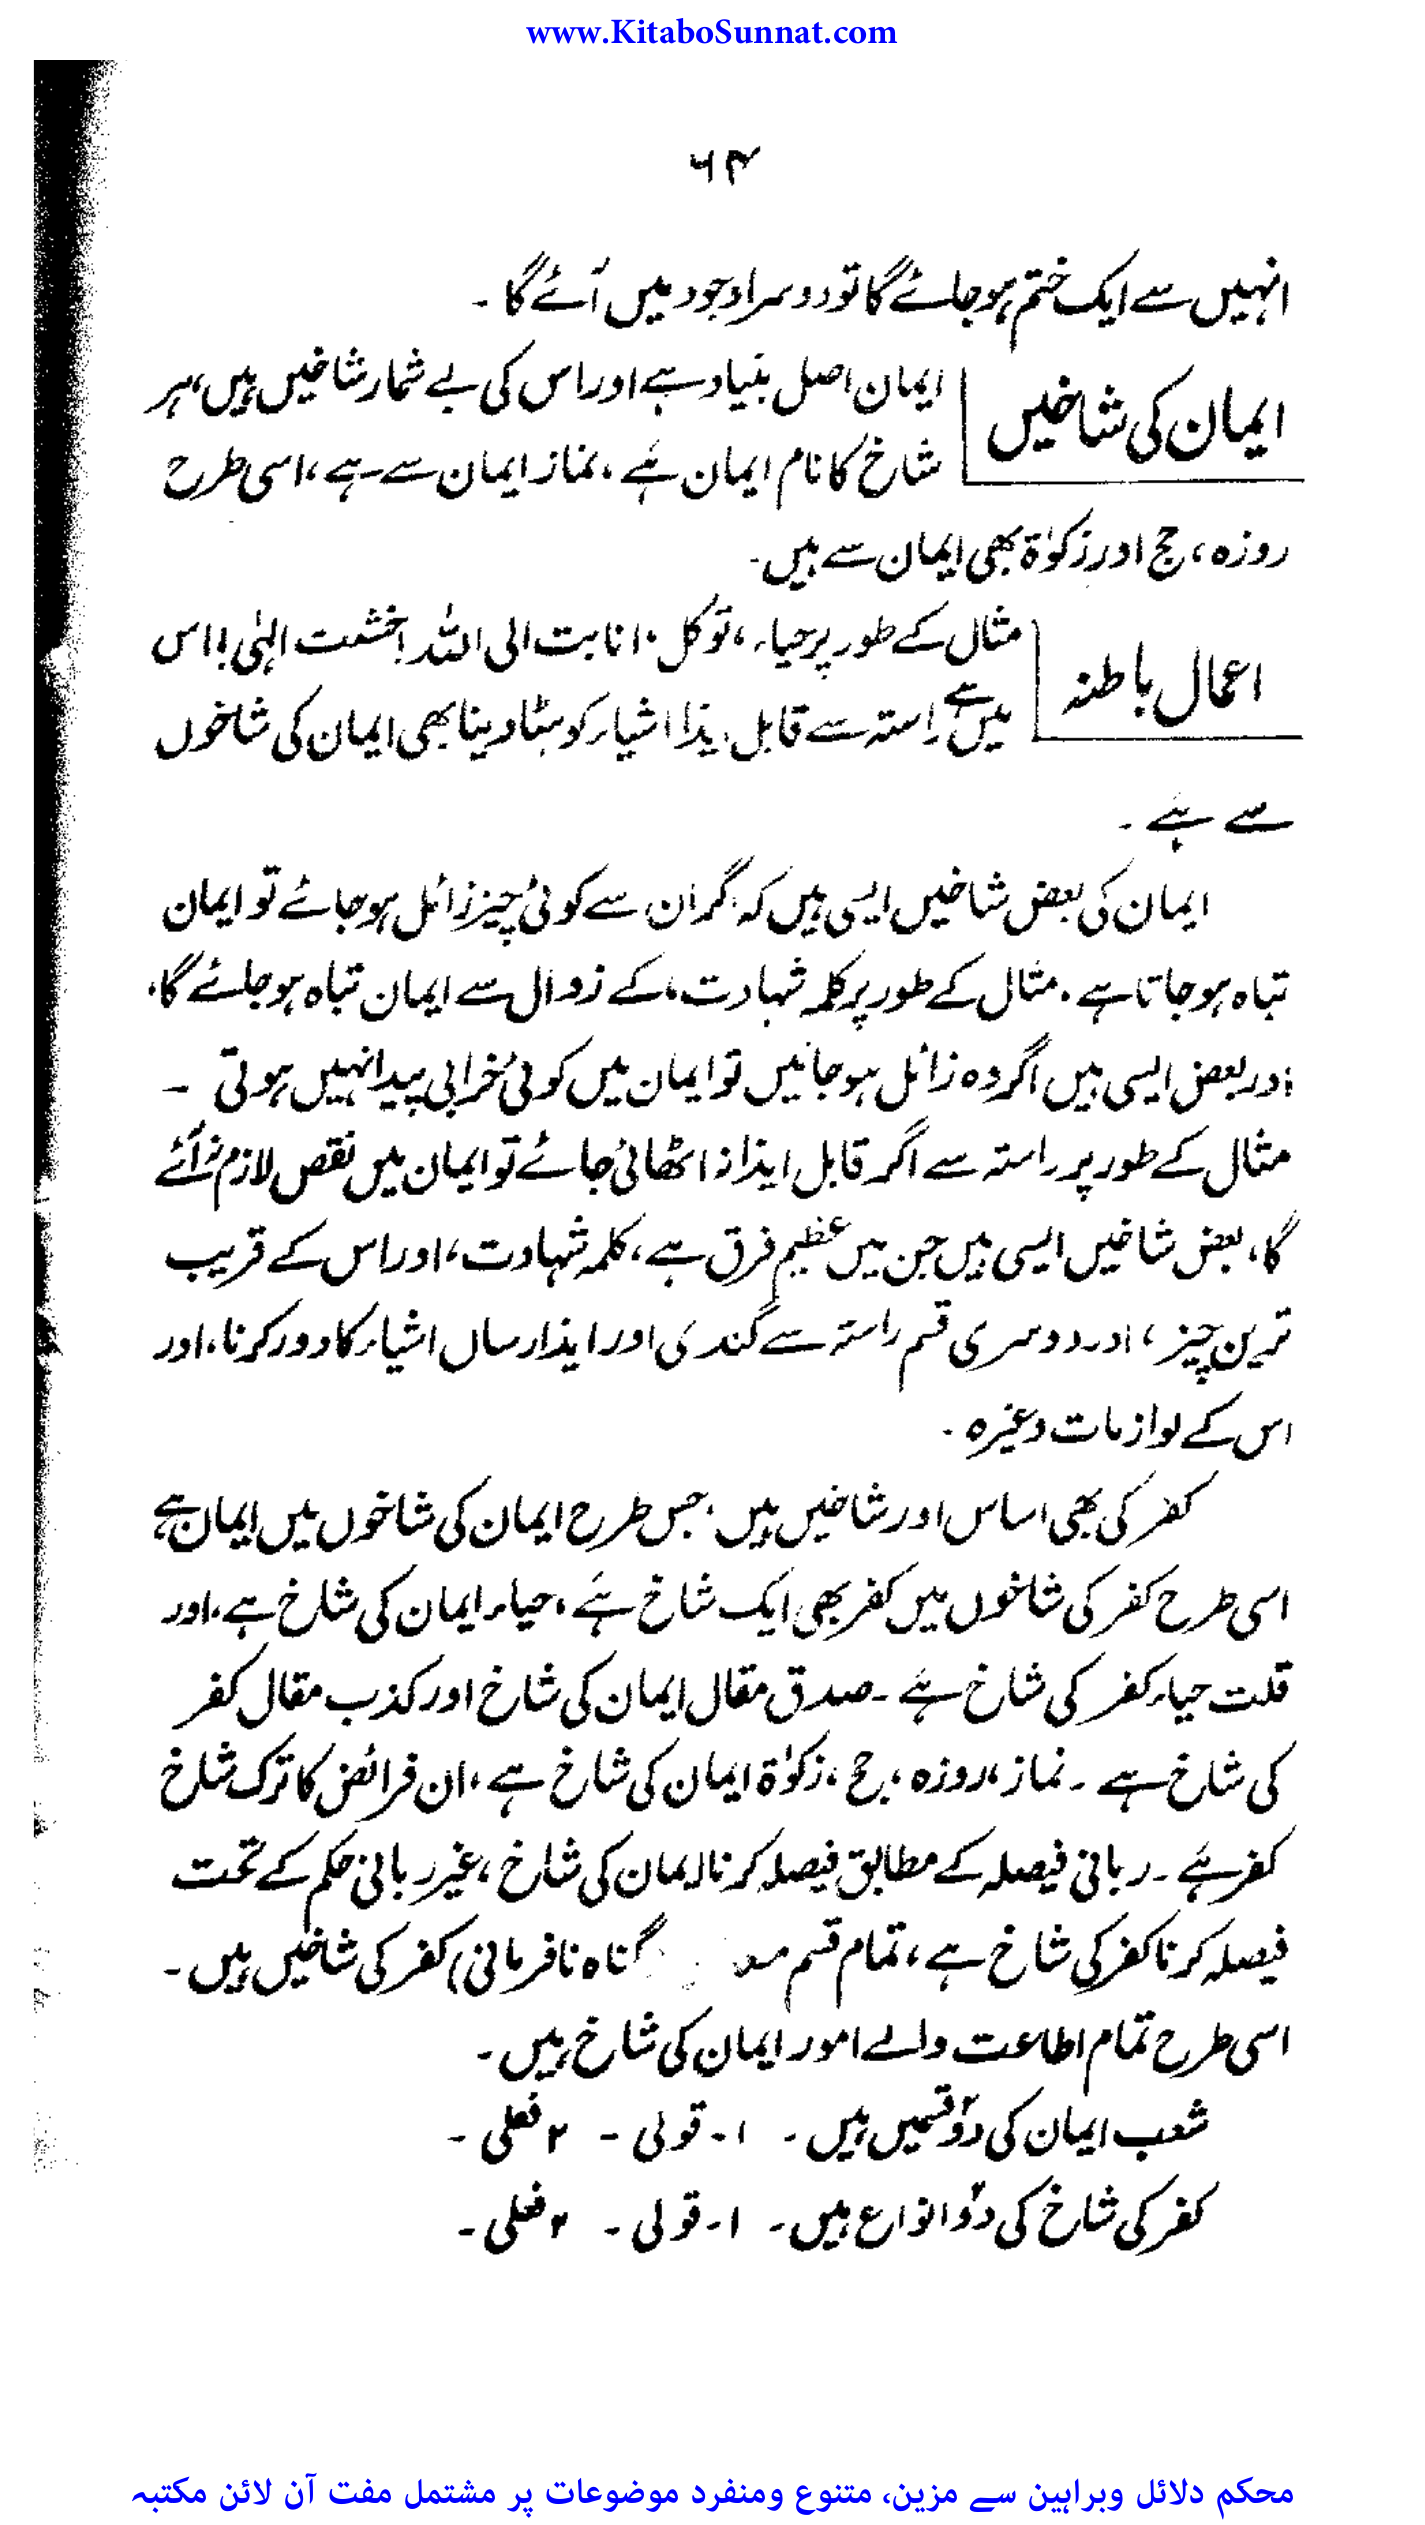 www.KitaboSunnat.com
۶۴
انہیں سے ایک ختم ہو جائے گا تو دوسرا وجود میں آئے گا ۔
ایمان کی شاخیں
ایمان اصل بنیاد ہے اور اس کی بے شمار شاخیں ہیں، ہر
شاخ کا نام ایمان ہے ، نماز ایمان سے ہے ، اسی طرح
روزہ ، حج اور زکوٰۃ بھی ایمان سے ہیں۔
اعمال باطنہ
مثال کے طور پر حیاء ، توکل ، انابت الی اللہ ، خشیت الہٰی ! اس
میں ہے راستہ سے قابل ایذا اشیاء کو ہٹا دینا بھی ایمان کی شاخوں
سے ہے ۔
ایمان کی بعض شاخیں ایسی ہیں کہ اگر ان سے کوئی چیز زائل ہو جائے تو ایمان
تباہ ہو جاتا ہے ، مثال کے طور پر کلمہ شہادت ، کے زوال سے ایمان تباہ ہو جائے گا ،
اور بعض ایسی ہیں اگر وہ زائل ہو جائیں تو ایمان میں کوئی خرابی پیدا نہیں ہوتی ۔
مثال کے طور پر راستہ سے اگر قابل ایذا نہ اٹھائی جائے تو ایمان میں نقص لازم نہ آئے
گا ، بعض شاخیں ایسی ہیں جن میں عظیم فرق ہے ، کلمہ شہادت ، اور اس کے قریب
ترین چیز ، اور دوسری قسم راستہ سے گندگی اور ایذا رساں اشیاء کا دور کرنا ، اور
اس کے لوازمات وغیرہ ۔
کفر کی بھی اساس اور شاخیں ہیں ، جس طرح ایمان کی شاخوں میں ایمان ہے
اسی طرح کفر کی شاخوں میں کفر بھی ایک شاخ ہے ، حیاء ایمان کی شاخ ہے ، اور
قلت حیاء کفر کی شاخ ہے ۔ صدق مقال ایمان کی شاخ اور کذب مقال کفر
کی شاخ ہے ۔ نماز ، روزہ ، حج ، زکوٰۃ ایمان کی شاخ ہے ، ان فرائض کا ترک شاخ
کفر ہے ۔ ربانی فیصلہ کے مطابق فیصلہ کرنا ایمان کی شاخ ، غیر ربانی حکم کے تحت
فیصلہ کرنا کفر کی شاخ ہے ، تمام قسم گناہ نافرمانی) کفر کی شاخیں ہیں ۔
اسی طرح تمام اطاعت والے امور ایمان کی شاخ ہیں ۔
شعب ایمان کی دو قسمیں ہیں ۔ ۱۔ قولی ۔ ۲ فعلی ۔
کفر کی شاخ کی دو انواع ہیں ۔ ۱۔ قولی ۔ ۲ فعلی ۔
محکم دلائل وبراہین سے مزین، متنوع ومنفرد موضوعات پر مشتمل مفت آن لائن مکتبہ